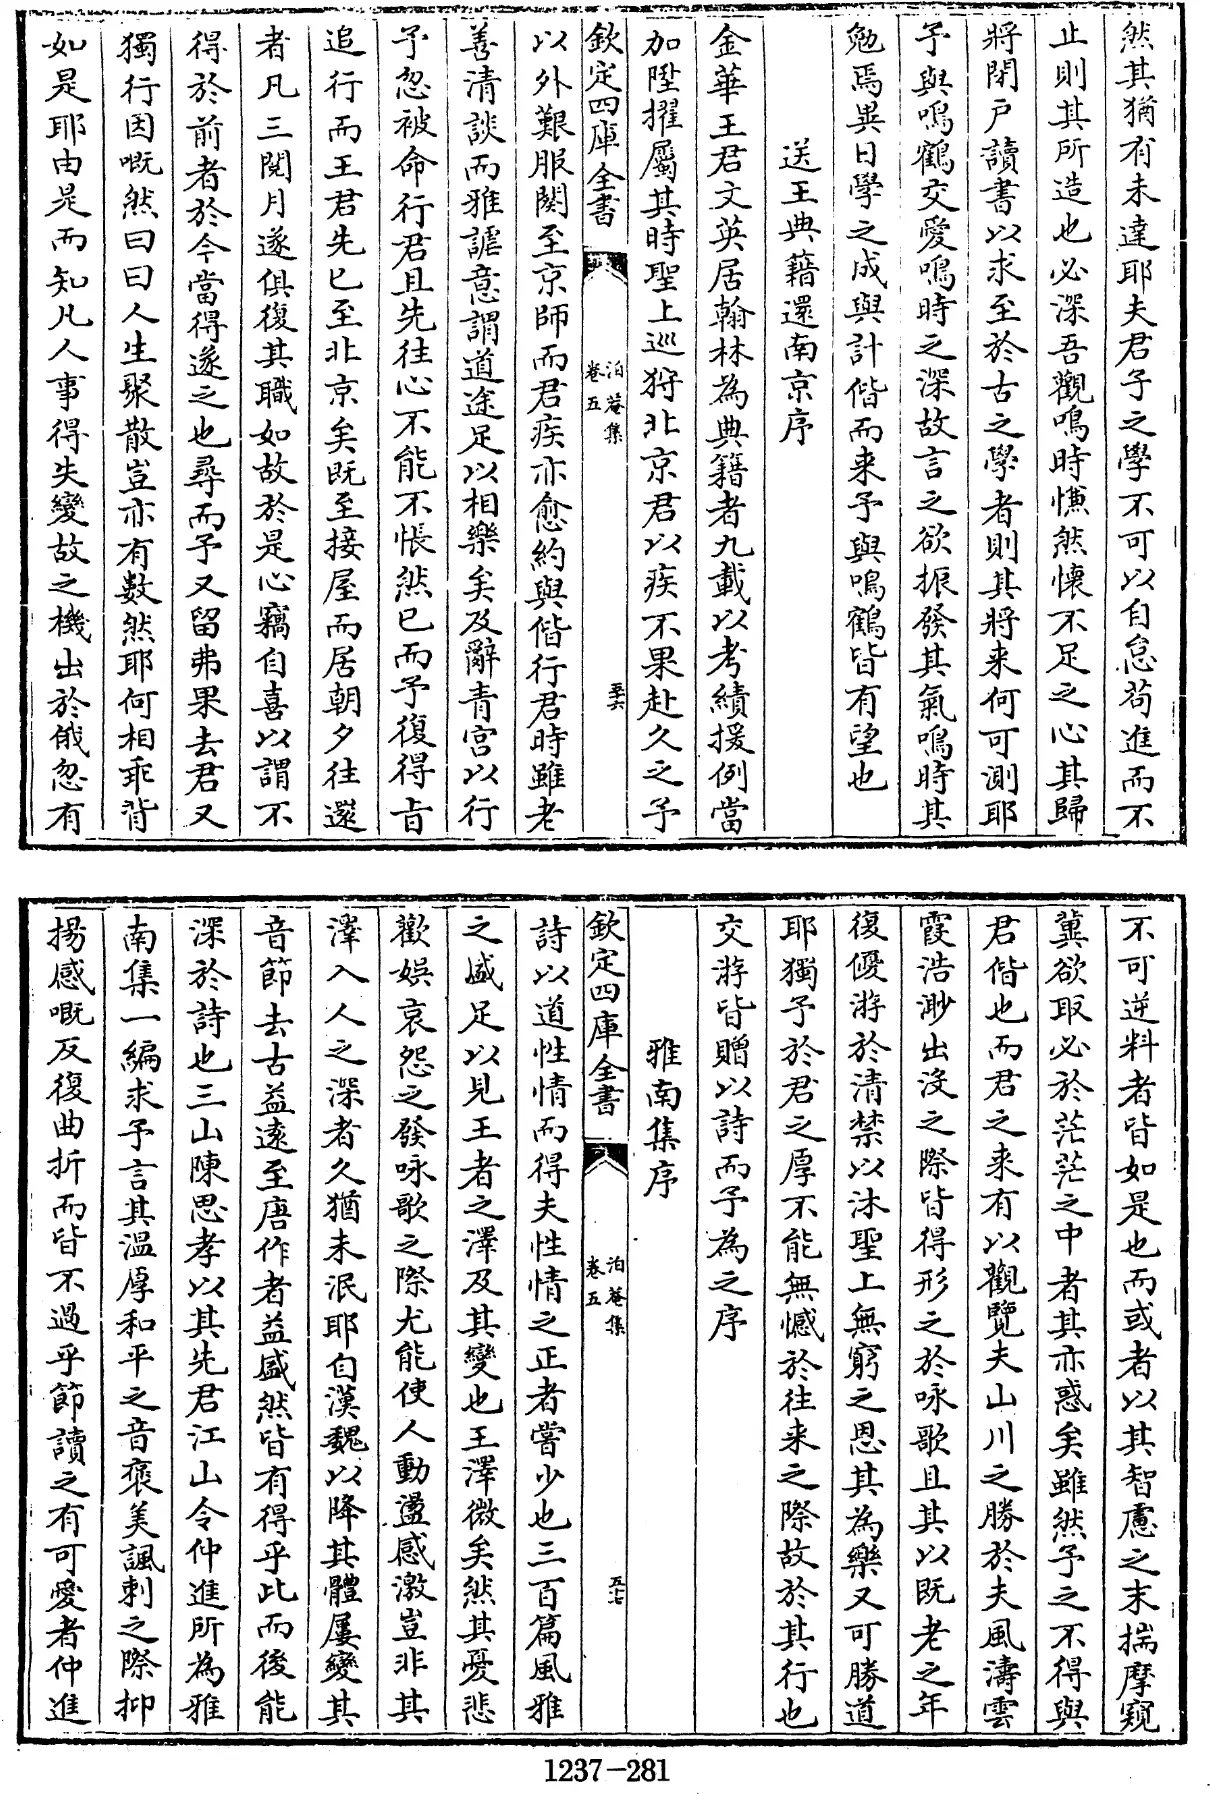 然其猶有未達耶夫君子之學不可以自怠茍進而不
止則其所造也必深吾觀鳴時慊然懷不足之心其歸
將閉戶讀書以求至於古之學者則其將来何可測耶
予與鳴鶴交愛鳴時之深故言之欲振發其氣鳴時其
勉焉異日學之成與計偕而来予與鳴鶴皆有望也
送王典籍還南京序
金華王君文英居翰林為典籍者九載以考績援例當
加陞擢屬其時聖上巡狩北京君以疾不果赴久之予
欽定四庫全書
泊菴集
卷五
五十六
以外艱服闋至京師而君疾亦愈約與偕行君時雖老
善清談而雅謔意謂道途足以相樂矣及辭青宮以行
予忽被命行君且先往心不能不悵然已而予復得旨
追行而王君先已至北京矣既至接屋而居朝夕往還
者凡三閱月遂俱復其職如故於是心竊自喜以謂不
得於前者於今當得遂之也尋而予又留弗果去君又
獨行因嘅然曰曰人生聚散豈亦有數然耶何相乖背
如是耶由是而知凡人事得失變故之機出於俄忽有
不可逆料者皆如是也而或者以其智慮之末揣摩窺
冀欲取必於茫茫之中者其亦惑矣雖然予之不得與
君偕也而君之来有以觀覽夫山川之勝於夫風濤雲
霞浩渺出沒之際皆得形之於咏歌且其以既老之年
復優游於清禁以沐聖上無窮之恩其為樂又可勝道
耶獨予於君之厚不能無憾於往来之際故於其行也
交游皆贈以詩而予為之序
雅南集序
欽定四庫全書
泊菴集
卷五
五十七
詩以道性情而得夫性情之正者嘗少也三百篇風雅
之盛足以見王者之澤及其變也王澤微矣然其憂悲
歡娛哀怨之發咏歌之際尤能使人動盪感激豈非其
澤入人之深者久猶未泯耶自漢魏以降其體屢變其
音節去古益遠至唐作者益盛然皆有得乎此而後能
深於詩也三山陳思孝以其先君江山令仲進所為雅
南集一編求予言其溫厚和平之音褒美諷刺之際抑
揚感嘅反復曲折而皆不過乎節讀之有可愛者仲進
1237-281